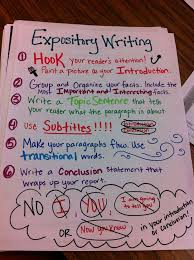 Expository Writing
① HOOK your reader's attention!
Paint a picture as your Introduction.
② Group and Organize your facts. Include the
most Important and Interesting facts.
③ Write a Topic Sentence that tells
your reader what the paragraph is about.
④ Use Subtitles!!!!
⑤ Make your paragraphs flow. Use
transitional words.
⑥ Write a Conclusion statement that
wraps up your report.
NO I, YOU, I am going to tell you
OR Now you know
in your introduction
or conclusion!